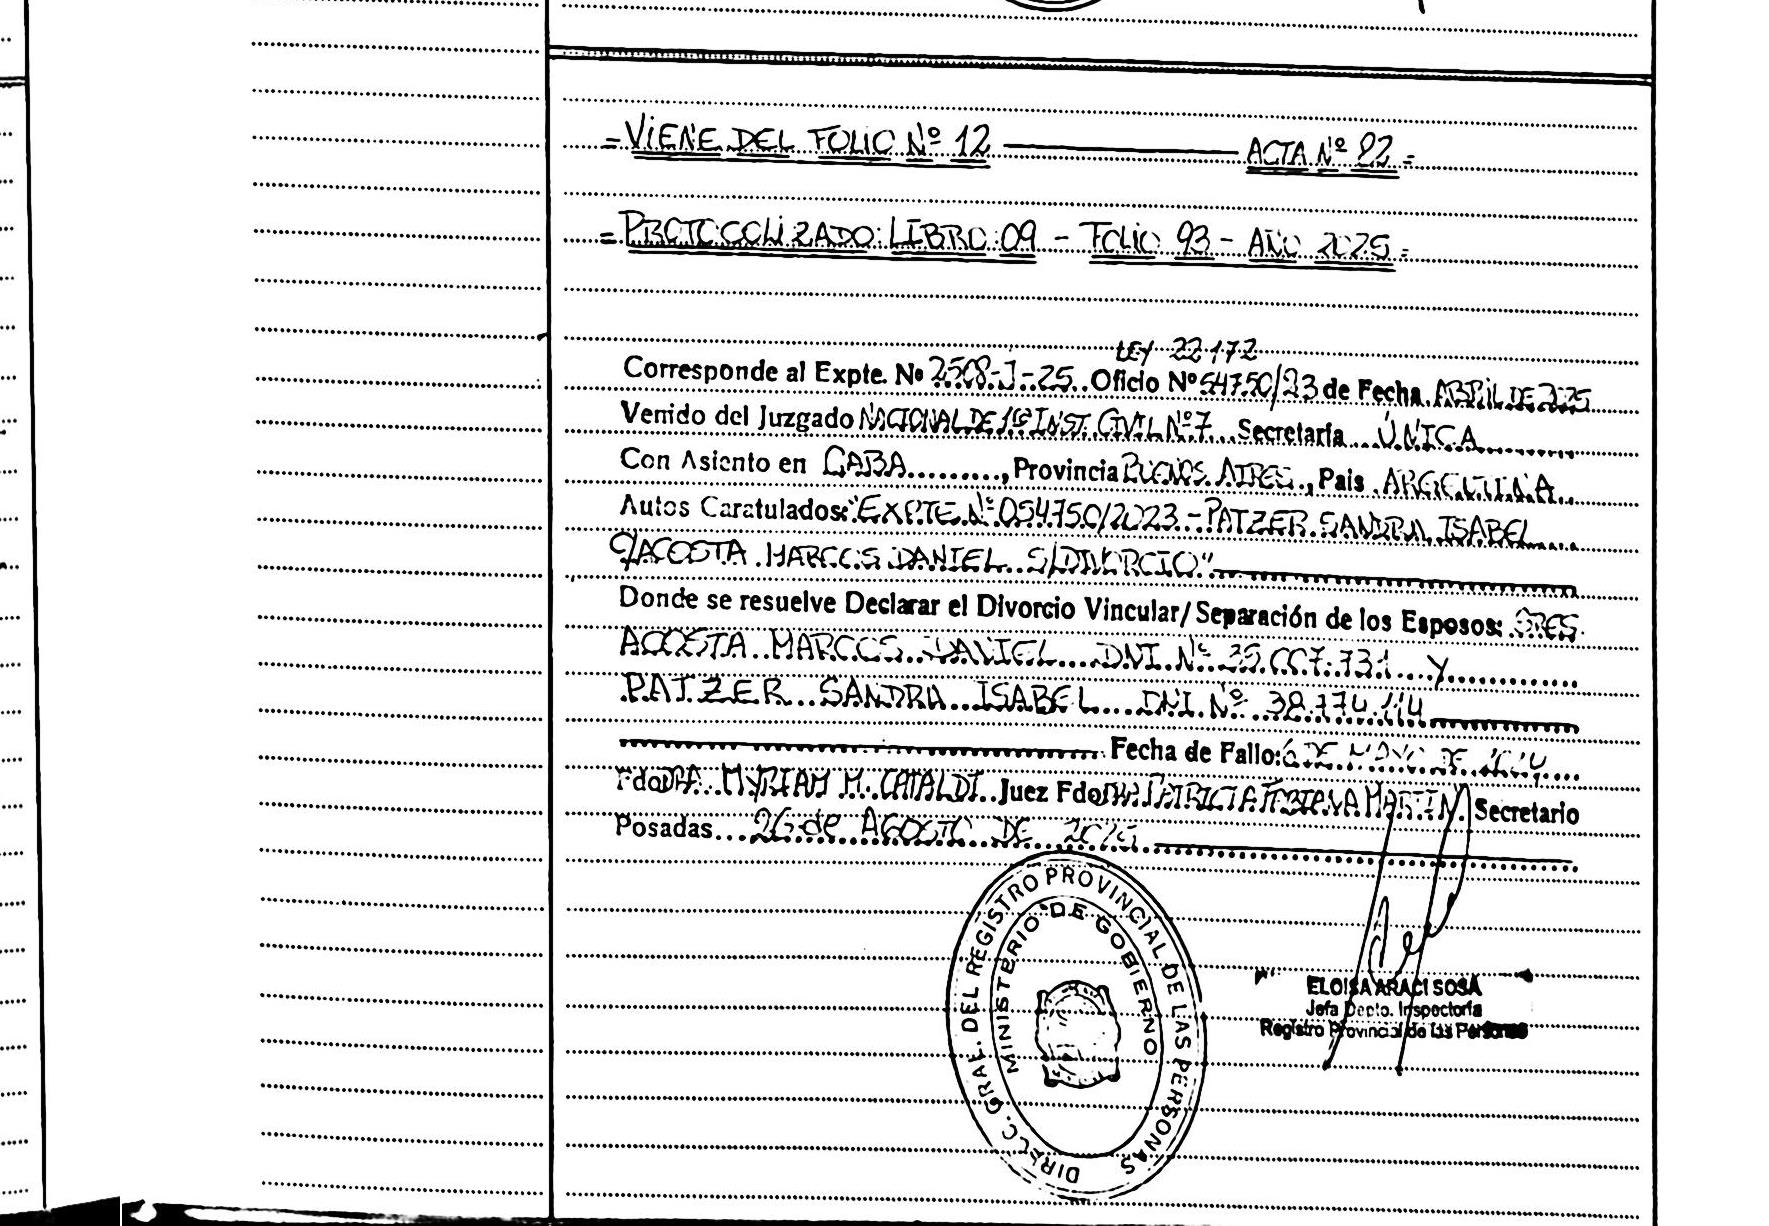 =VIENE DEL FOLIO Nº 12 ——— ACTA Nº 82=
=PROTOCOLIZADO: LIBRO 09 - FOLIO 93 - AÑO 2025=
LEY 22172
Corresponde al Expte. Nº 2508-J-25 Oficio Nº 54750/23 de Fecha ABRIL DE 2025
Venido del Juzgado NACIONAL DE 1ra INST. CIVIL Nº 7 Secretaría ÚNICA
Con Asiento en CABA, Provincia BUENOS AIRES, Pais ARGENTINA
Autos Caratulados: "EXPTE Nº 054750/2023 - PATZER SANDRA ISABEL
C/ACOSTA MARCOS DANIEL S/DIVORCIO"
Donde se resuelve Declarar el Divorcio Vincular/Separación de los Esposos: SRES
ACOSTA MARCOS DANIEL DNI Nº y
PATZER SANDRA ISABEL DNI Nº 38.774.114
Fecha de Fallo: 6 DE MAYO DE 2024
Fdo DRA. MYRIAM M. CATALDI Juez Fdo DRA. PATRICIA FABIANA MARTIN Secretario
Posadas 26 de AGOSTO DE 2025
DIRECC. GRAL. DEL REGISTRO PROVINCIAL DE LAS PERSONAS
MINISTERIO DE GOBIERNO
ELOISA ARACI SOSA
Jefa Depto. Inspectoría
Registro Provincial de las Personas